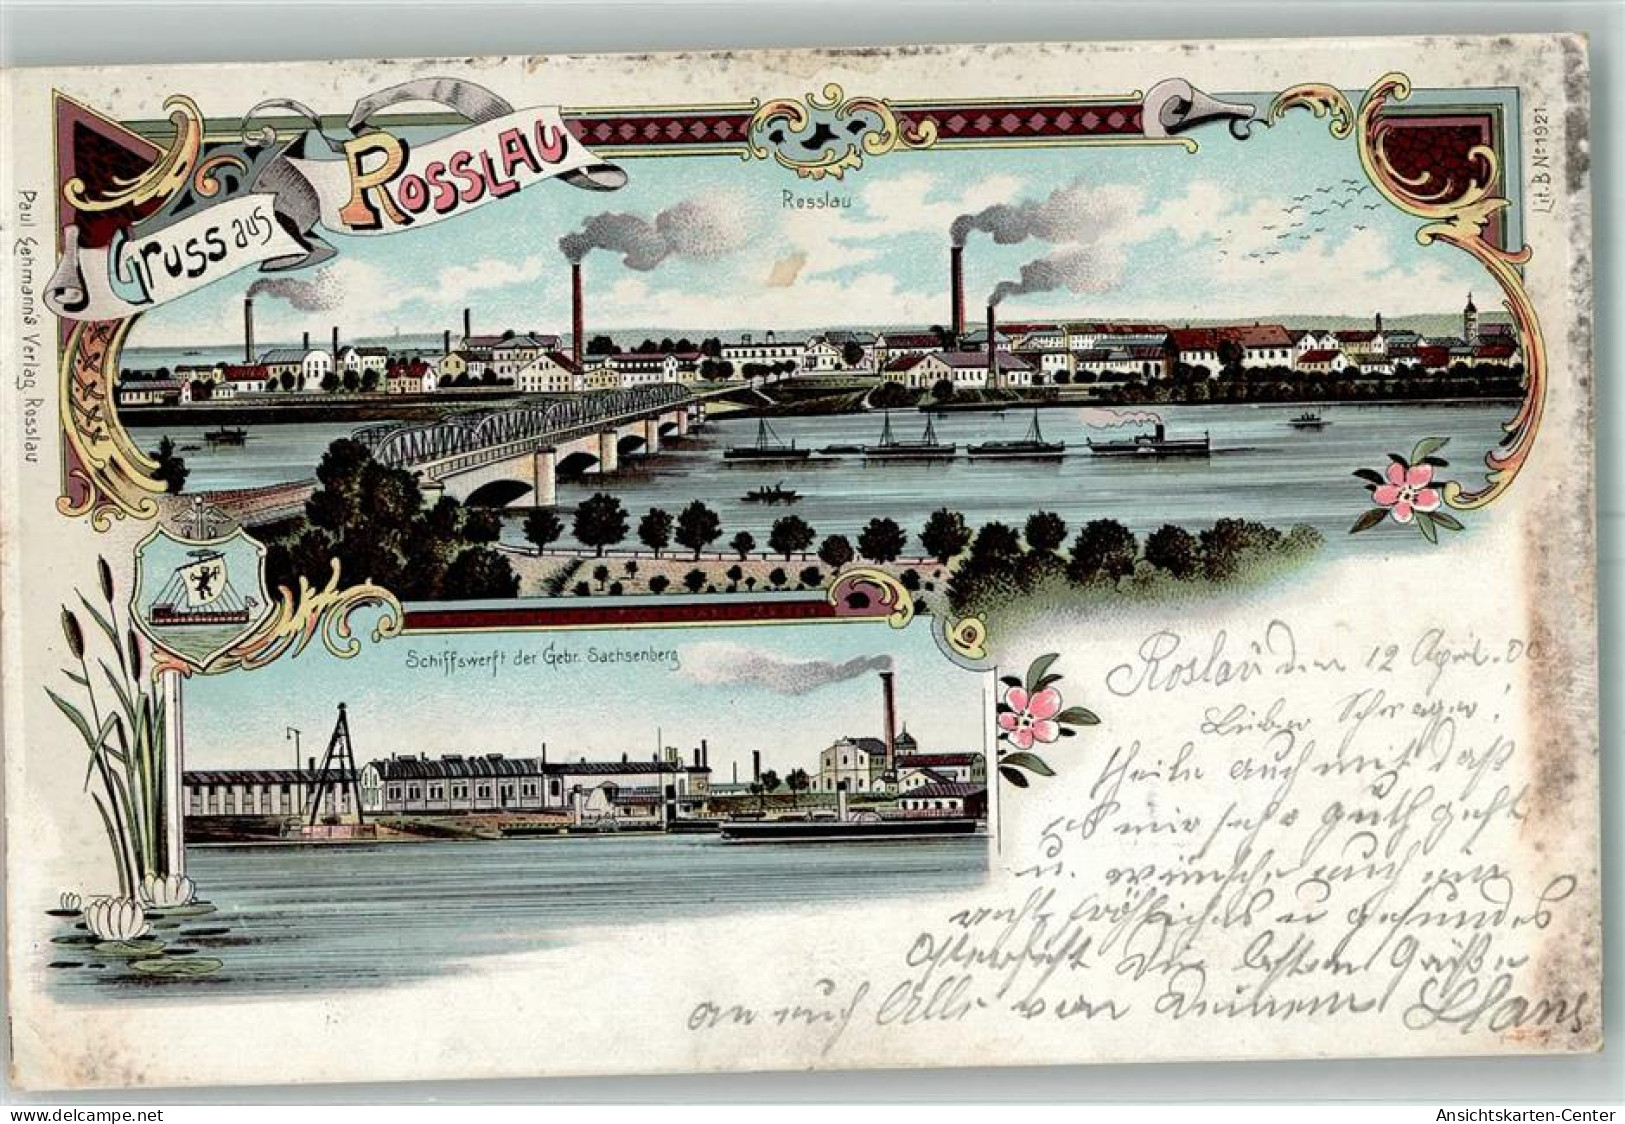 Gruss aus
Rosslau
Rosslau
Lit. B. No 1921.
Paul Lehmann's Verlag, Rosslau
Schiffswerft der Gebr. Sachsenberg
Roslau den 12 April. 00
Lieber Schwager!
theile euch mit daß
es mir sehr guth geht
u. wünsche euch ein
recht fröhliches u gesundes
Osterfest Die besten Grüße
an euch Alle von Deinem Hans
Ansichtskarten-Center
delcampe.net